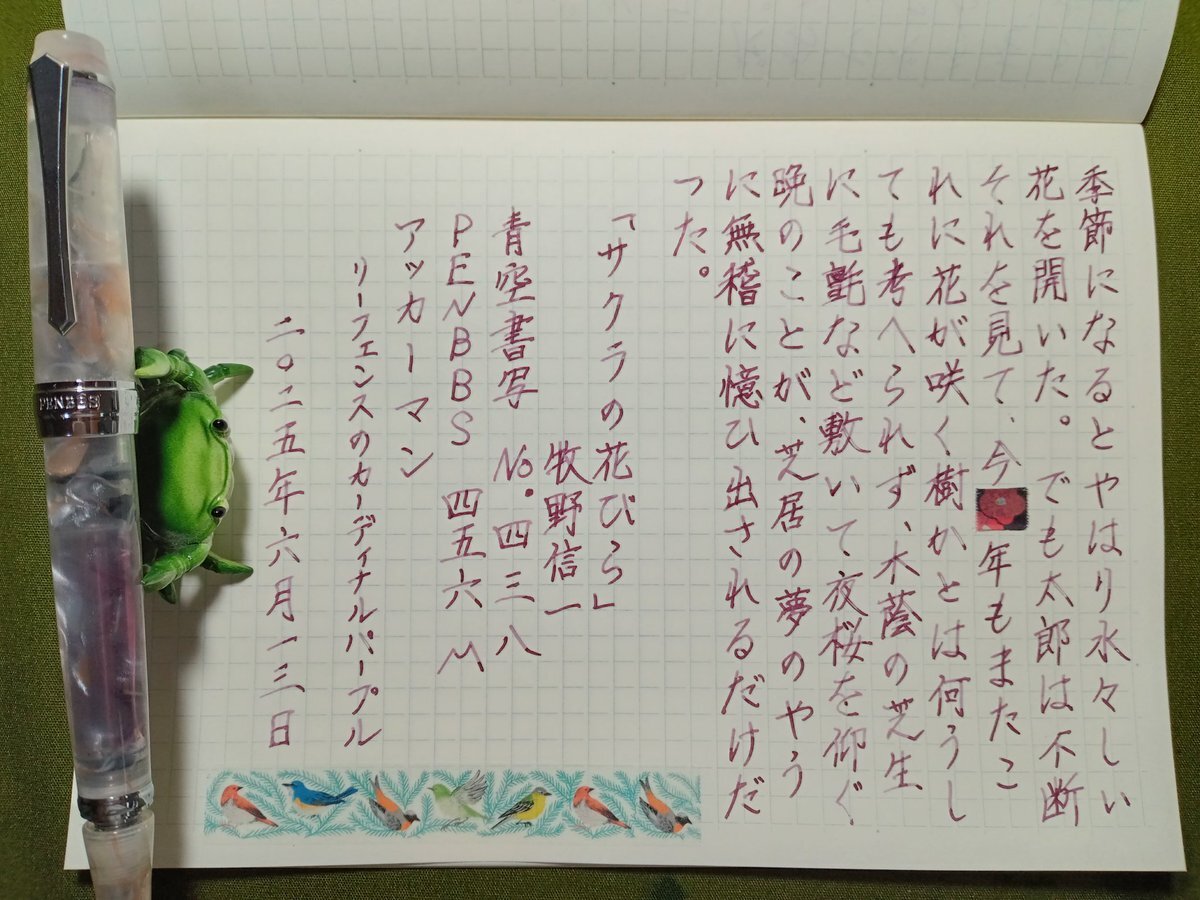 季節になるとやはり水々しい
花を開いた。でも太郎は不断
それを見て、今年もまたこ
れに花が咲く樹かとは何うし
ても考へられず、木蔭の芝生
に毛氈など敷いて夜桜を仰ぐ
晩のことが、芝居の夢のやう
に無稽に憶ひ出されるだけだ
った。
「サクラの花びら」
牧野信一
青空書写 No.四三八
PENBBS 四五六 M
アッカーマン
リーフェンスのカーディナルパープル
二〇二五年六月一三日
PENBBS